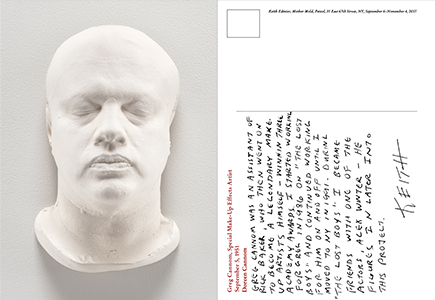 Keith Edmier, Mother Mold, Petzel, 35 East 67th Street, NY, September 6–November 4, 2017
Greg Cannom, Special Make-Up Effects Artist
September 5, 1951
Doreen Cannom
GREG CANNOM WAS AN ASSISTANT OF
RICK BAKER WHO THEN WENT ON
TO BECOME A LEGENDARY MAKE-
UP ARTIST HIMSELF - WINNING THREE
ACADEMY AWARDS. I STARTED WORKING
FOR GREG IN 1986 ON "THE LOST
BOYS" AND CONTINUED WORKING
FOR HIM ON AND OFF UNTIL I
MOVED TO NY IN 1991. DURING
"THE LOST BOYS" I BECAME
FRIENDS WITH ONE OF THE
ACTORS, ALEX WINTER - HE
FIGURES IN LATER INTO
THIS PROJECT.
KEITH